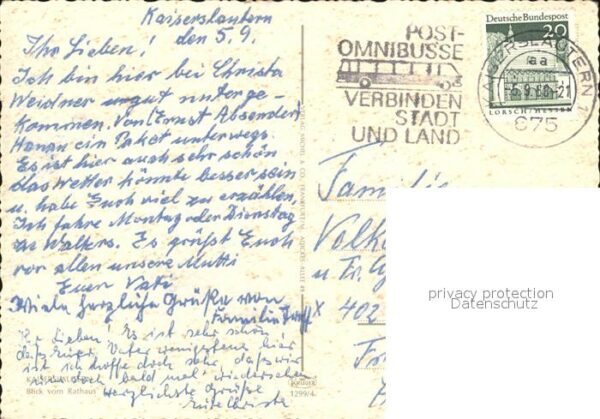 Kaiserslautern
den 5.9.
Ihr Lieben!
Ich bin hier bei Christa
Weidner gut unterge-
kommen. Von (Ernst Absender)
Hanau ein Paket unterwegs.
Es ist hier auch sehr schön
das Wetter könnte besser sein
u. habe Euch viel zu erzählen,
Ich fahre Montag oder Dienstag
Walters. Es grüßt Euch
vor allen unsere Mutti
Euer Vati
Viele herzliche Grüße von
Familie
Ihr Lieben! Es ist sehr schön,
daß Euer Vater wenigstens hier
ist ich hoffe doch sehr, daß wir
uns doch bald mal wiedersehen
Herzlichste Grüße
Eure Christa
Blick vom Rathaus
1299/4
POST-
OMNIBUSSE
VERBINDEN
STADT
UND LAND
Deutsche Bundespost
20
LORSCH/HESSEN
KAISERSLAUTERN 1
aa
5.9.68-21
675
Familie
Volk
u. Fr.
402
privacy protection
Datenschutz